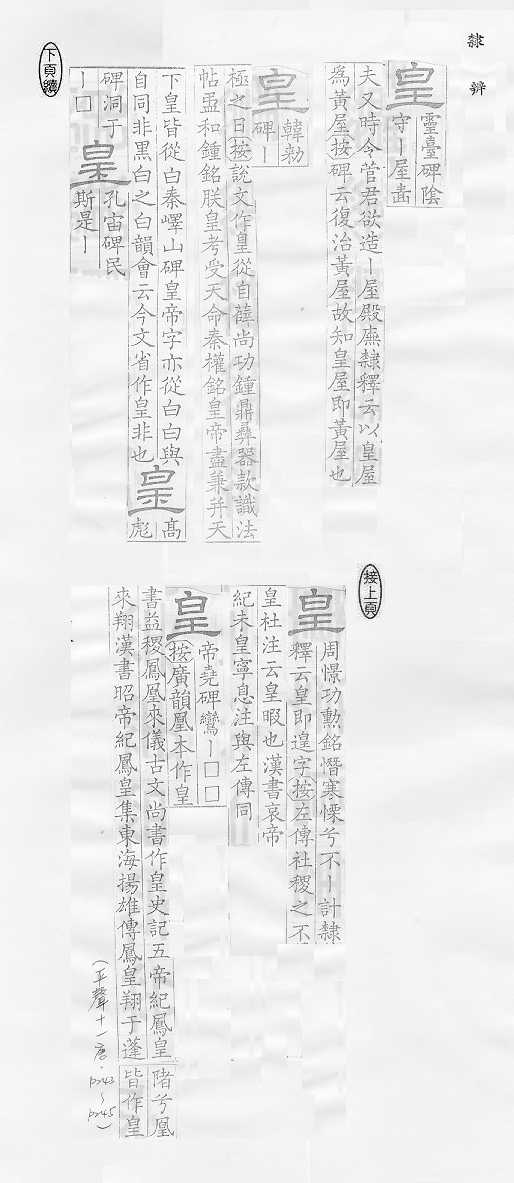 隸辨
皇
靈臺碑陰
守丨屋嗇
夫又時令管君欲造丨屋殿廡隸釋云以皇屋
為黃屋按碑云復治黃屋故知皇屋即黃屋也
皇
韓勑
碑丨
極之日按說文作皇從自薛尚功鐘鼎彝器款識法
帖盄和鍾銘朕皇考受天命秦權銘皇帝盡兼并天
下皇皆從白秦嶧山碑皇帝字亦從白白與
自同非黑白之白韻會云今文省作皇非也
皇
高
彪
碑洞于
丨□
皇
孔宙碑民
斯是丨
下頁續
接上頁
皇
周憬功勲銘憯寒慄兮不丨計隸
釋云皇即遑字按左傳社稷之不
皇社注云皇暇也漢書哀帝
紀未皇寧息注與左傳同
皇
帝堯碑鸞丨□□
按廣韻凰本作皇
書益稷鳳凰來儀古文尚書作皇史記五帝紀鳳皇
來翔漢書昭帝紀鳳皇集東海揚雄傳鳳皇翔于蓬
陼兮凰
皆作皇
(平聲十一唐·P243~P245)